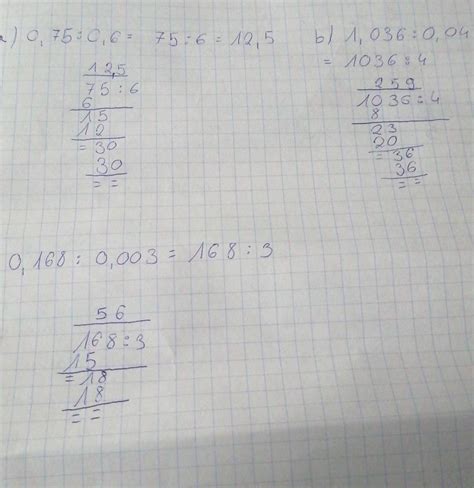 a) 0,75:0,6= 75:6=12,5
12,5
75:6
6
15
12
=30
30
==
b) 1,036:0,04
=1036:4
259
1036:4
8
23
20
=36
36
==
0,168:0,003=168:3
56
168:3
15
=18
18
==